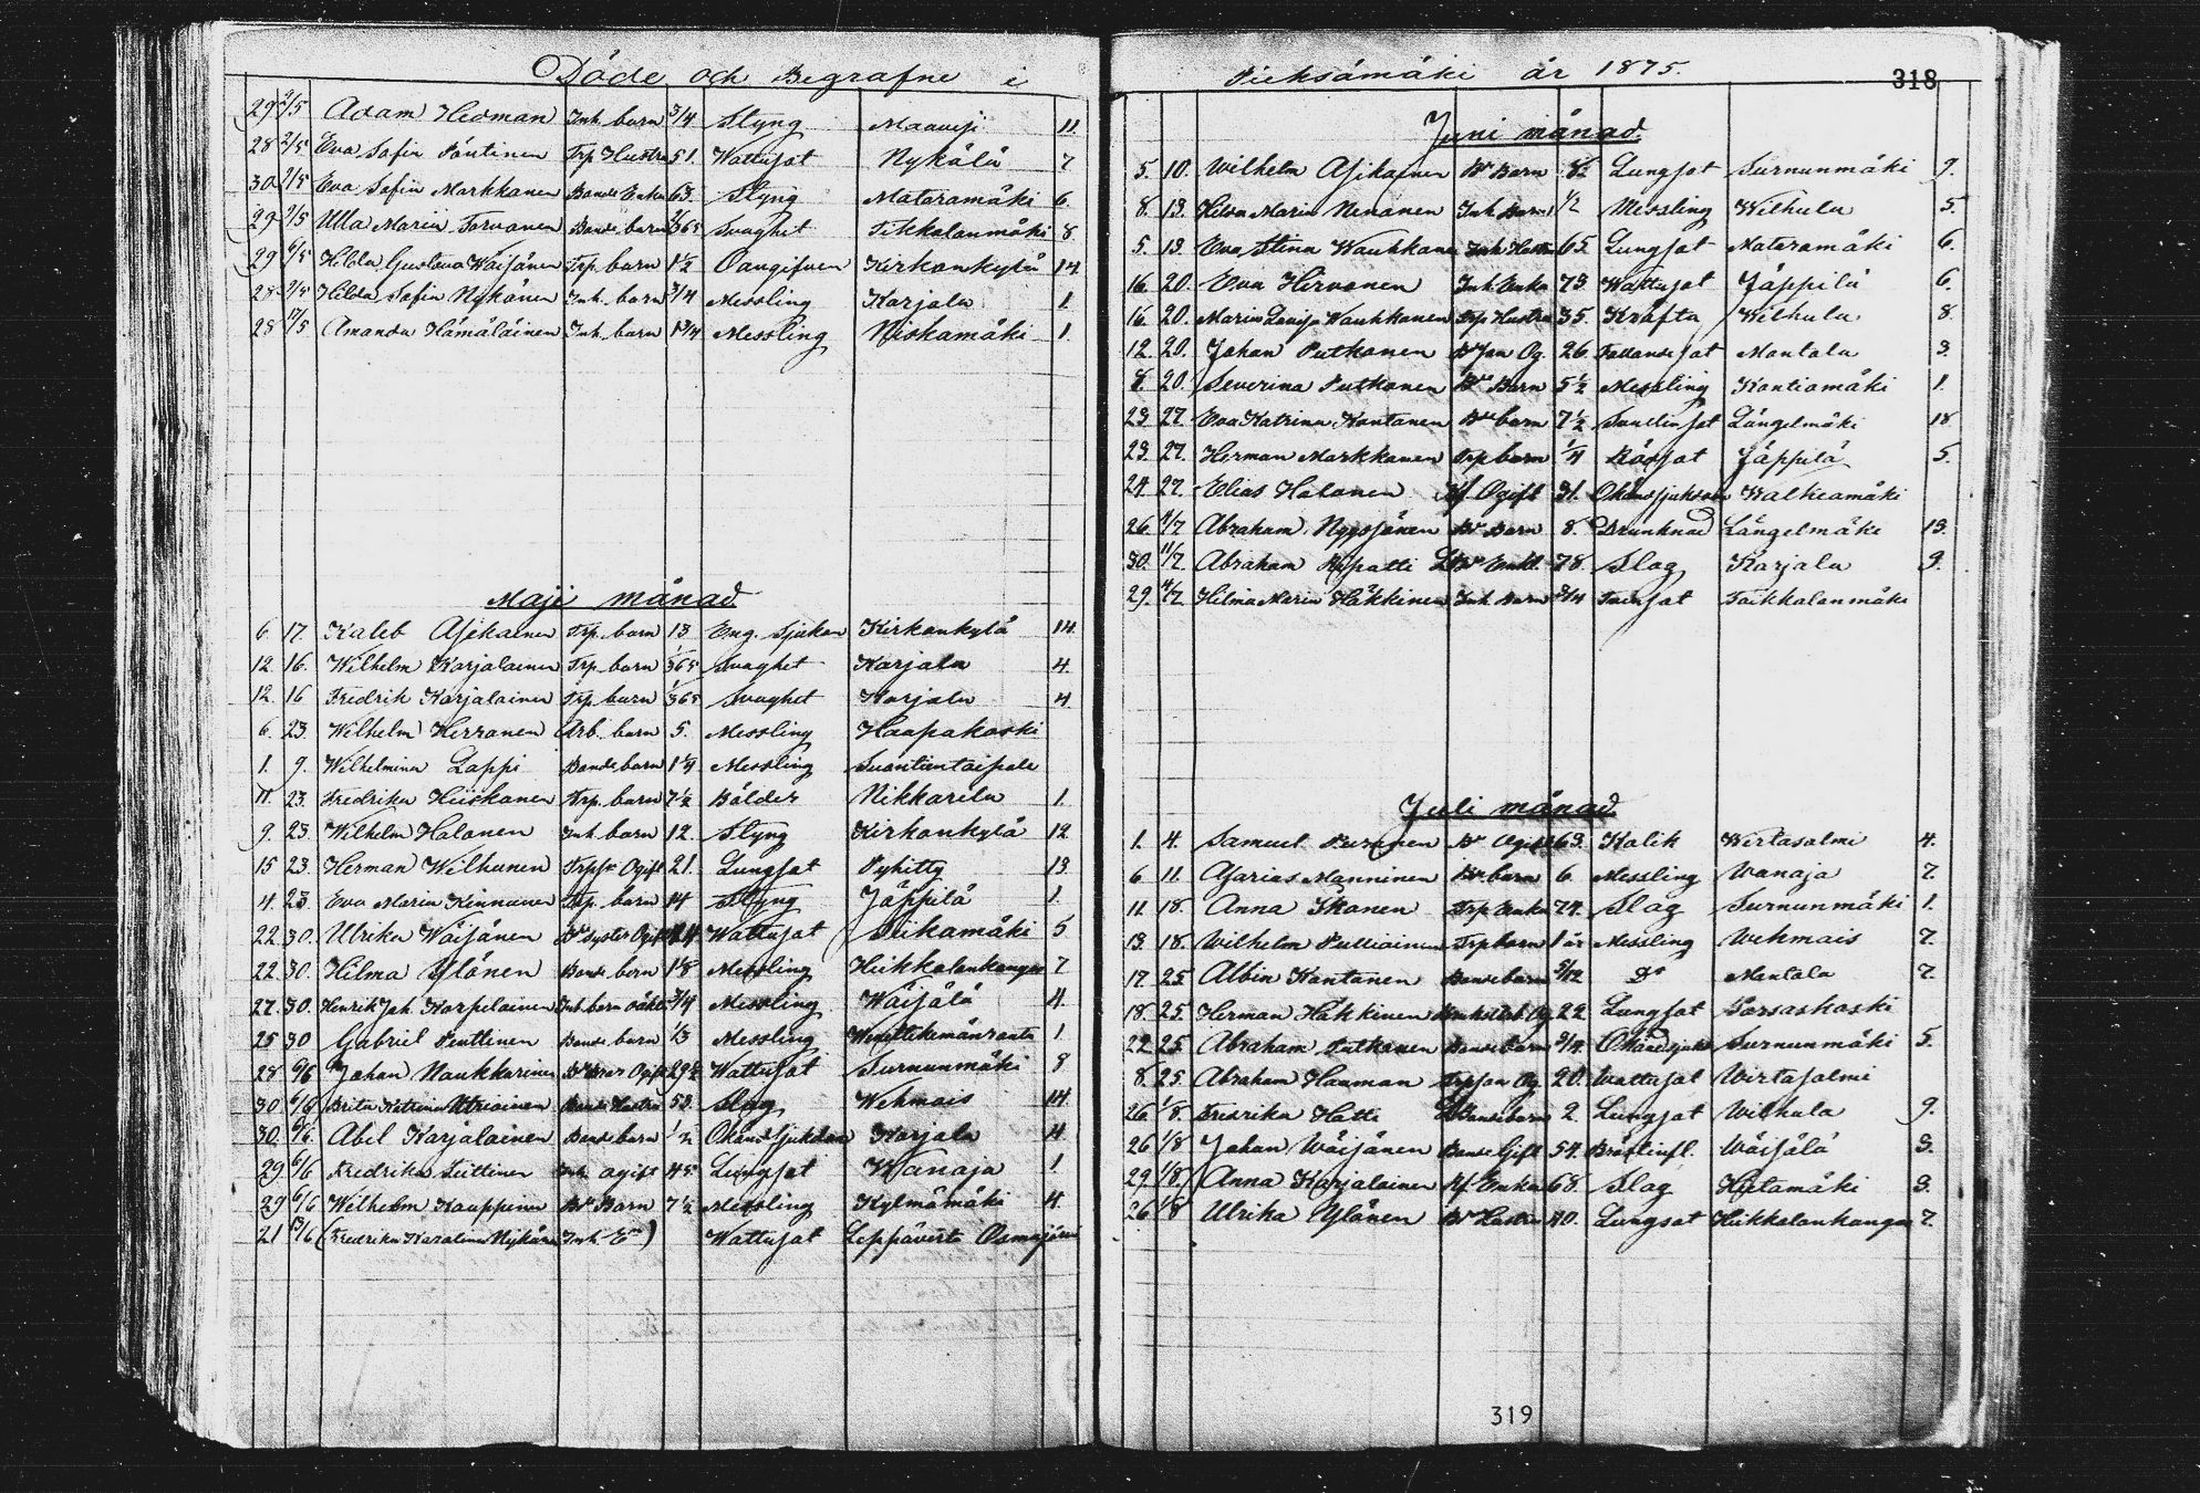 Döde och Begrafne i
29 2/5 Adam Hedman Inh. barn 3/4 Styng Maavesi 11
28 2/5 Eva Sofia Pöntinen Trp Hustru 51. Wattusot Nykälä 7
30 2/5 Eva Sofia Markkanen Bonde Enka 63. Styng Mataramäki 6
29 2/5 Ulla Maria Torvanen Bonde barn 2/365 Svaghet Tikkalanmäki 8
29 6/5 Hilda Gustava Waisänen Trp. barn 1 1/2 Oangifven Kirkonkylä 14
28 2/5 Hilda Sofia Nykänen Inh. barn 3/4 Messling Karjala 1
28 17/5 Amanda Hämäläinen Inh. barn 1 3/4 Messling Niskamäki 1.
Maji månad
6 17. Kaleb Asikainen Trp. barn 13 Eng. Sjukan Kirkonkylä 14
12. 16. Wilhelm Karjalainen Trp. barn 1/365 Svaghet Karjala 4.
12. 16 Fredrik Karjalainen Trp. barn 1/365 Svaghet Karjala 4
6. 23. Wilhelm Hirvonen Arb. barn 5. Messling Haapakoski
1. 9. Wilhelmina Lappi Bonde barn 1 1/4 Messling Suontientaipale
11. 23. Fredrika Hiiskanen Trp. barn 7 1/2 Bölder Nikkarila 1
9. 23 Wilhelm Halonen Inh. barn 12. Styng Kirkonkylä 12
15 23. Herman Wilhunen Ogift 21. Lungsot Pyhitty 13
4. 23. Eva Maria Kinnunen Trp. barn 14 Styng Jäppilä 1.
22. 30. Ulrika Wäisänen Bd syster Ogift Wattusot Siikamäki 5
22 30. Hilma Ylönen Bonde barn 1 1/8 Messling Hiikkalankangas 7
27. 30. Henrik Joh. Karpelainen Inh. barn oäkta 3/4 Messling Wäisälä 4.
25 30 Gabriel Penttinen Bonde barn 1/3 Messling 1
28 6/6 Johan Naukkarinen Ogift 29 1/2 Wattusot Surnunmäki 8
30 6/6 Brita Katrina Utriainen Bonde Hustru 53. Slag Wehmais 14
30. 6/6. Abel Karjalainen Bonde barn 1/2 Okänd sjukdom Karjala 4
29. 6/6 Fredrika Inh. ogift 45 Lungsot Wanaja 1
29 6/6 Wilhelm Kauppinen Bd Barn 7 1/2 Messling Kylmämäki 4.
21 13/6 (Fredrika Karolina Nykänen Inh. En) Wattusot Leppävirta Osmajärvi
Pieksämäki år 1875.
318
Juni månad.
5. 10. Wilhelm Asikainen Bd Barn Lungsot Surnunmäki 9.
8. 13. Hilda Maria Nenonen Inh Barn 1/2 Messling Wilhula 5.
5. 13 Eva Stina Wauhkanen Inh Hustru 65. Lungsot Mataramäki 6.
16. 20. Eva Hirvonen Inh. Enka 73. Wattusot Jäppilä 6.
16. 20. Maria Lovisa Wauhkanen Trp Hustru 35. Kräfta Wilhula 8.
12. 20. Johan Putkonen Bd Son Og. 26. Fallandesot Montola 3.
8. 20. Severina Putkonen Bd Barn 5 1/2 Messling Kontiomäki 1.
23 27. Eva Katrina Kontanen Bd barn 7 1/2 Längelmäki 18
23. 27. Herman Markkanen Trp barn 1/4 Rödsot Jäppilä 5.
24. 27. Elias Halonen Ogift 31. Okänd sjukdom Kalkiamäki
26 4/7 Abraham Nyyssönen Bd Barn 8. Drunknad Längelmäki 13.
30. 11/7. Abraham Ripatti Enkl. 78. Slag Karjala 9.
29. 4/7 Hilma Maria Häkkinen Inh Barn 3/4 Tvinsot Tuikkalanmäki
Juli månad.
1. 4. Samuel Puranen Bd Ogift 63. Kolik Wirtasalmi 4.
6 11. Asarias Manninen Bd barn 6. Messling Wanaja 7.
11. 18. Anna Ikonen Trp Enka 74. Slag Surnunmäki 1.
13. 18. Wilhelm Pulliainen Trp barn 1 år Messling Wehmais 7.
17. 25. Albin Kontanen Bonde barn 5/12 Do Montola 7.
18. 25. Herman Häkkinen 22 Lungsot Porsaskoski
22. 25. Abraham Putkonen Bonde barn 3/4. Okänd sjukd. Surnunmäki 5.
8. 25. Abraham Hauman Trp son Og. 20. Wattusot Wirtasalmi
26. 1/8. Fredrika Hatti Bonde barn 2. Lungsot Wilhula 9.
26 1/8 Johan Wäisänen Bonde Gift 54. Bröstinfl. Wäisälä 3.
29. 1/8. Anna Karjalainen Enka 68. Slag Hietamäki 3.
26. 1/8 Ulrika Ylönen Bd Hustru 40. Lungsot Hiikkalankangas 7.
319